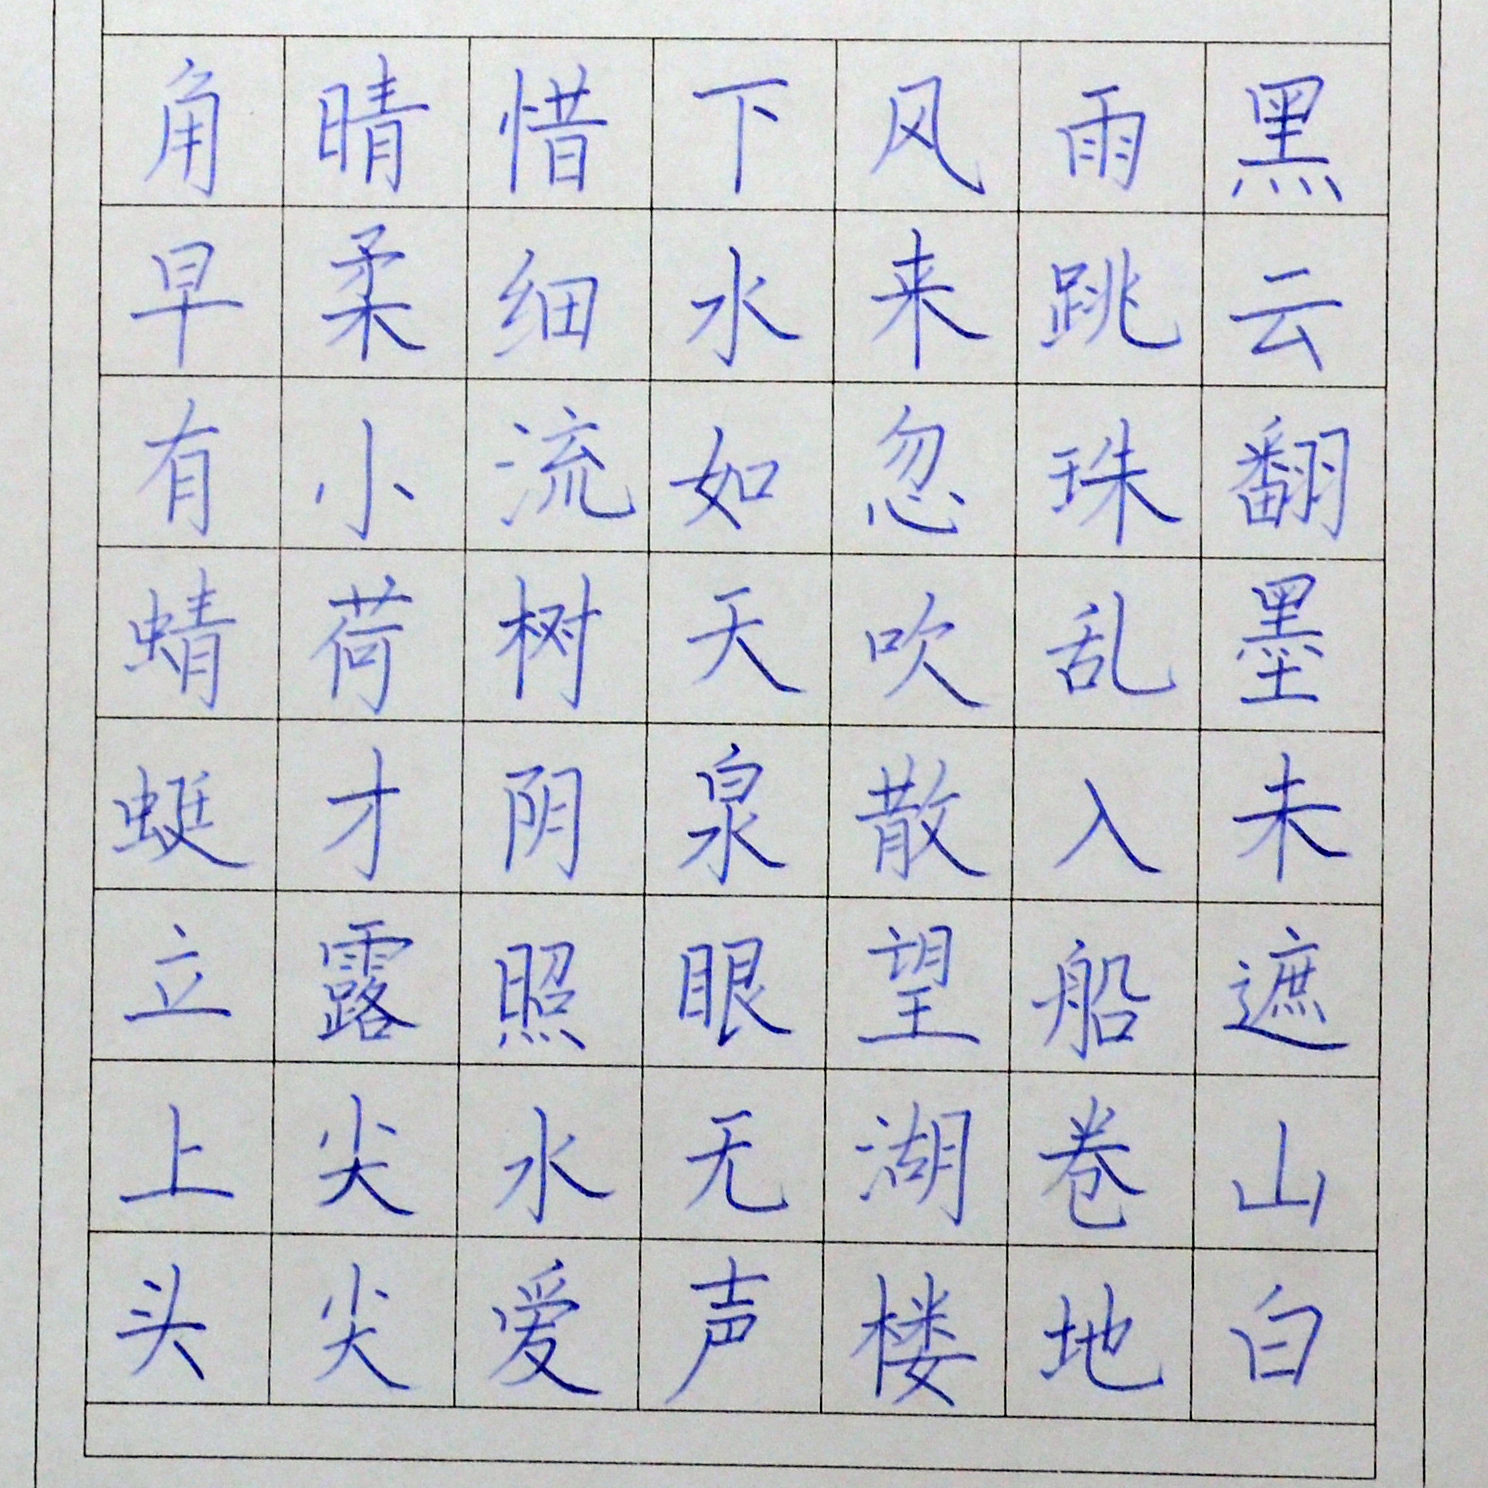 黑云翻墨未遮山白
雨跳珠乱入船卷地
风来忽吹散望湖楼
下水如天泉眼无声
惜细流树阴照水爱
晴柔小荷才露尖尖
角早有蜻蜓立上头